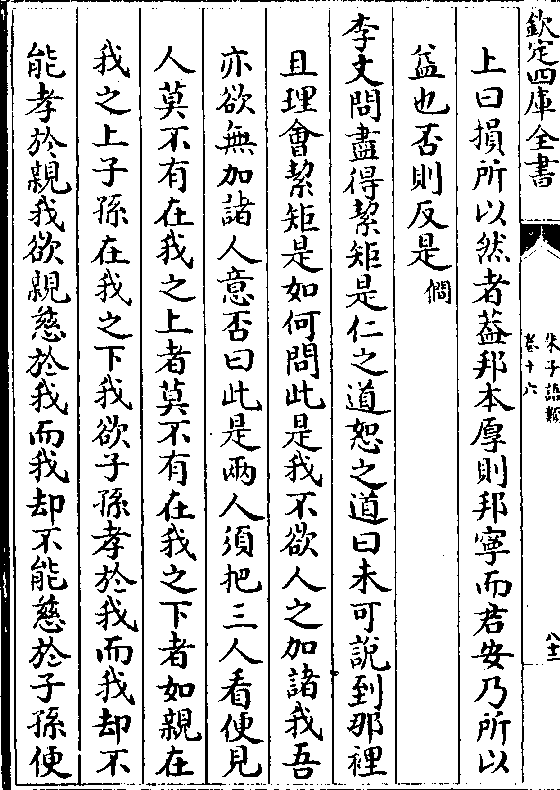 欽定四庫全書
朱子語類
卷十六
八十三
上曰損所以然者葢邦本厚則邦寧而君安乃所以
益也否則反是 僩
李丈問盡得絜矩是仁之道恕之道曰未可說到那裡
且理會絜矩是如何問此是我不欲人之加諸我吾
亦欲無加諸人意否曰此是兩人須把三人看便見
人莫不有在我之上者莫不有在我之下者如親在
我之上子孫在我之下我欲子孫孝於我而我却不
能孝於親我欲親慈於我而我却不能慈於子孫便